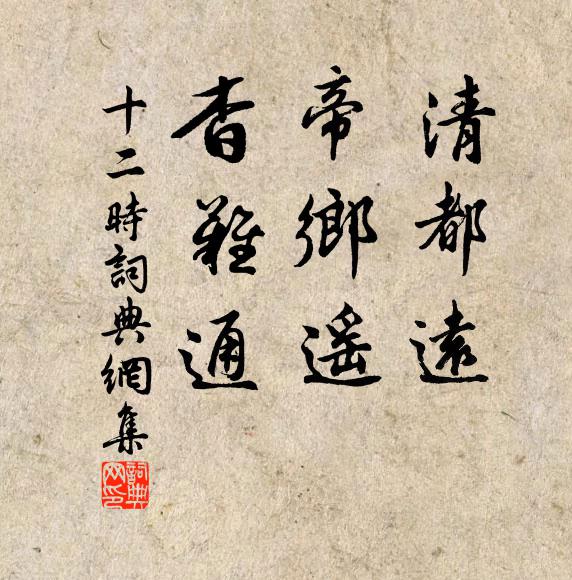 清都遠
帝鄉遥
杳難通
十二時詞典網集
詞典
网印